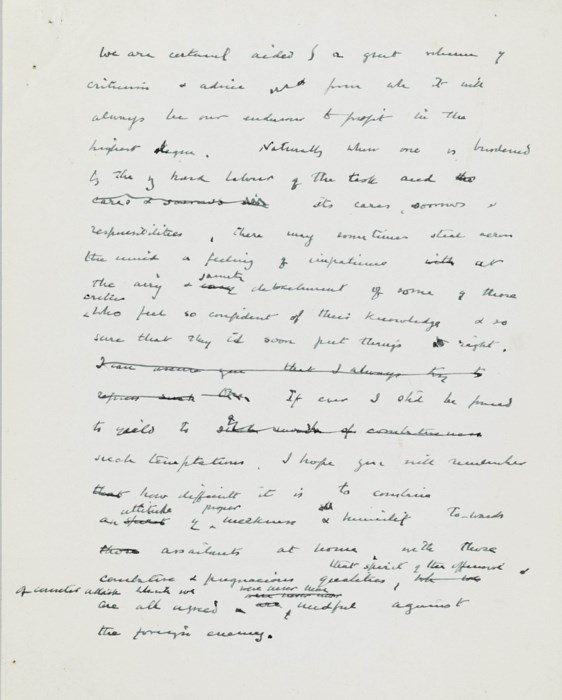 We are certainly aided by a great volume of
criticism & advice from wh it will
always be our endeavour to profit in the
highest degree. Naturally when one is burdened
by the hard labour of the task and the
cares & sorrows its cares, sorrows &
responsibilities, there may sometimes steal across
the mind a feeling of impatience with at
the airy & easy jaunty detachment of some of those
critics
who feel so confident of their knowledge & so
sure that they cd soon put things right.
I can assure you that I always try to
repress such If ever I shd be forced
to yield to combativeness
such temptations, I hope you will remember
that how difficult it is to combine
attitude proper
an spirit of meekness & humility towards
those assailants at home, with those
that spirit of the offensive &
combative & pugnacious qualities,
of counter attack
were never more
are all agreed are needful against
the foreign enemy.